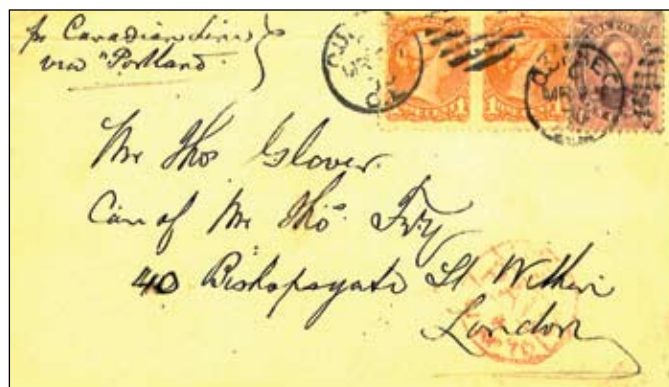 pr Canadian Line
via "Portland"
QUEBEC
1 1
Mr Thos Glover
Care of Mr Thos Fry
40 Bishopsgate St Within
London